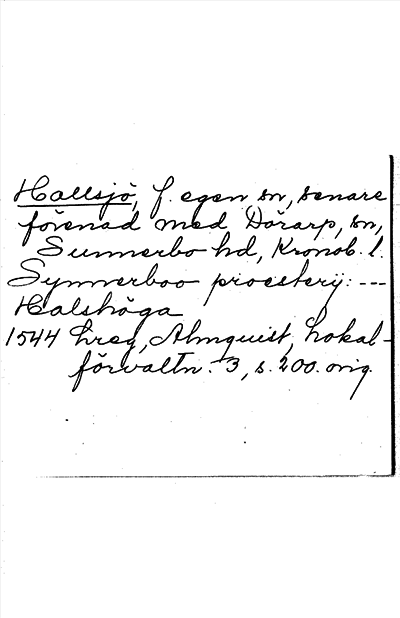 Hallsjö, f. egen sn, senare
förenad med Dörarp, sn,
Sunnerbo hd, Kronob. l.
Synnerboo proesterij: ---
Halshöga
1544 hreg, Almquist, Lokal-
förvaltn. 3, s. 200. orig.